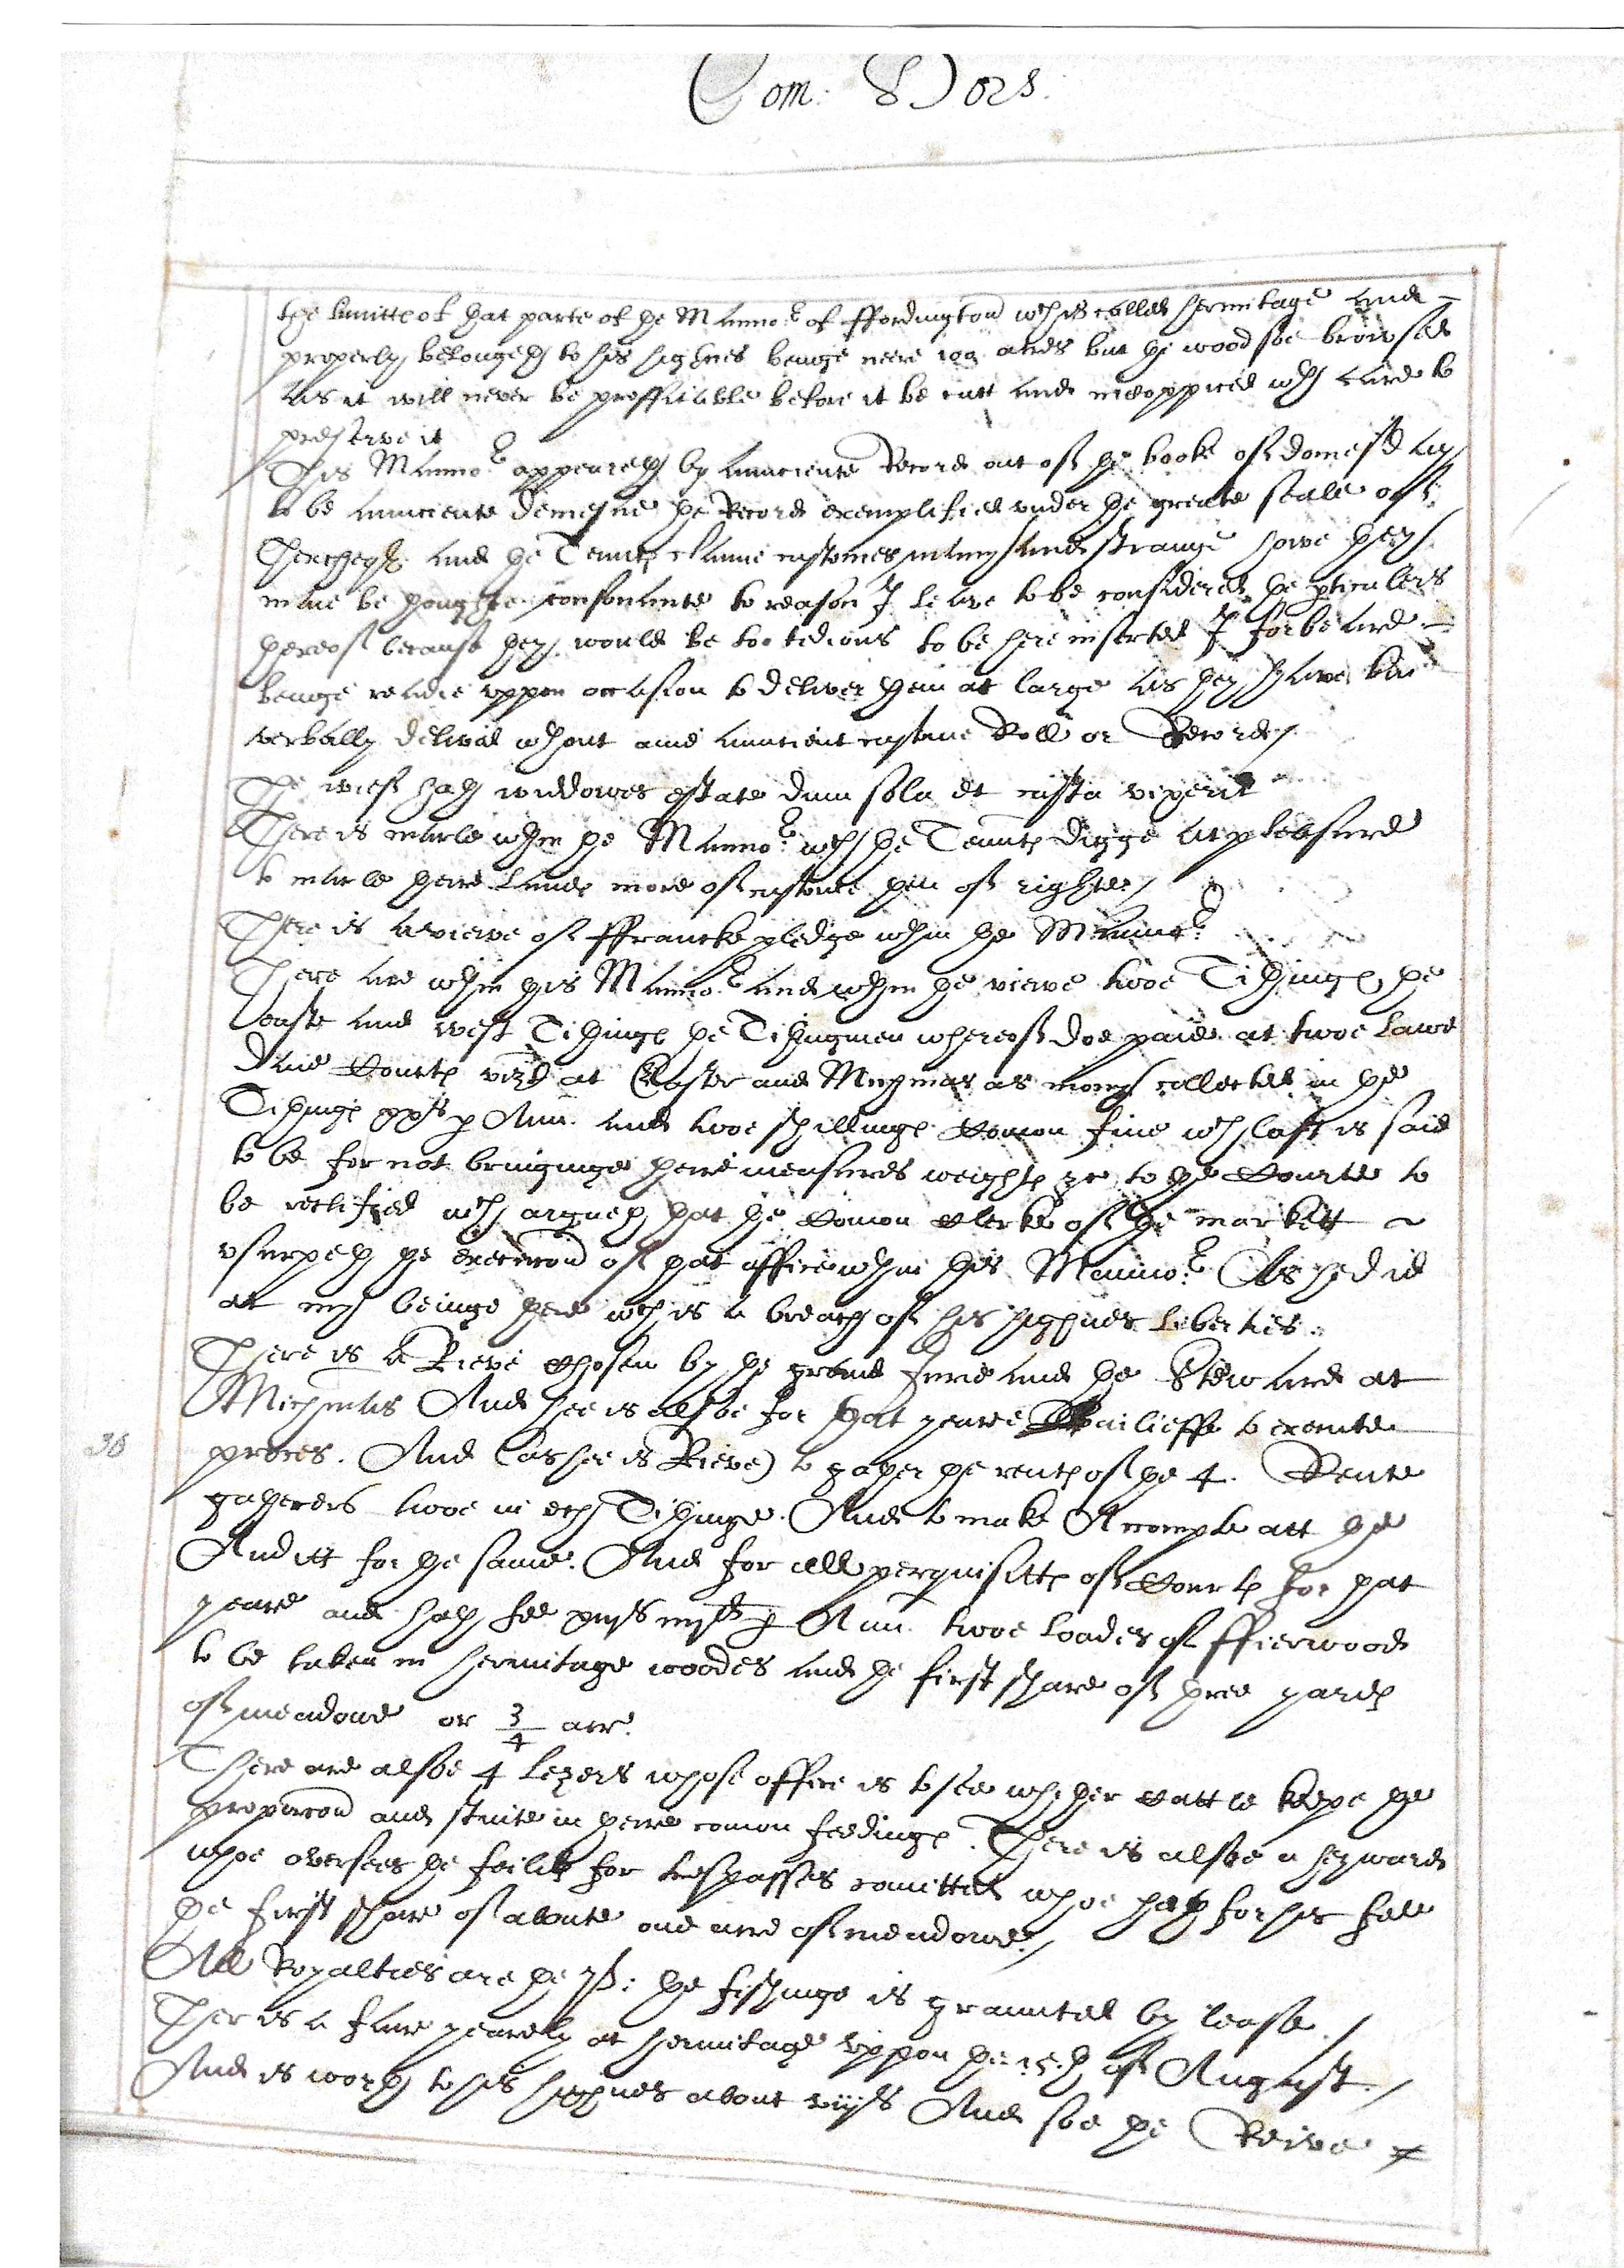 Com: Dors:
the limitte of that parte of the Manno:r of ffordington wch is called Hermitage and
properly belongeth to his Highnes beinge neere 100 acres but the wood soe browsed
as it will never be proffitable before it be cutt and incoppiced wth care to
preserve it
This Manno:r appeareth by auncient Record out of the booke of domesday
to be auncient demesne the Record exemplified under the greate seale of
Thexchequ:r and the Tennts clame customes many and strange howe they
maie be thoughte consonante to reason I leave to be considered the pticulers
thereof because they would be too tedious to be here inserted I forbeare
beinge readie uppon occasion to deliver them at large as they have bin
verbally delived wthout anie auncient custome Roll or Record /
The wief hath widdowes estate dum sola et casta vixerit
There is marle wthin the Manno:r wch the Tennts digge at pleasure
to marle there Lands more of custome then of righte /
There is a viewe of ffrancke pledge wthin the Manno:r
There are wthin this Manno:r and wthin the viewe twoe Tithings the
easte and west Tithings the Tithingmen whereof doe paie at twoe Lawe
daie Courts vizt at Easter and Michmas as mony collected in the
Tithings xxs p Ann. and twoe shillings Comon fine wch last is said
to be for not bringinge there measures weights &c to the Courte to
be rectified wch argueth that the Comon Clerke of the markett
usurpeth the execucon of that office wthin this Manno:r As he did
at my beinge there wch is a breach of his Highnes Liberties:
There is a Rieve Chosen by the grand Jurie and the Steward at
Michmas And hee is alsoe for that yeare Bailieffe to execute
proces. And (as hee is Rieve) to gather the rents of the 4. Rente
36
gatherers twoe in ech Tithinge. And to make Accompte att the
Auditt for the same. And for all perquisitts of Courts for that
yeare and hath fee xiijs iiijd p Ann. twoe Loades of ffierwood
to be taken in Hermitage woodes and the first share of three yards
of meadowe or 3/4 acr.
There are alsoe 4 Lezers whose office is to see whether Cattle keepe the
proporcon and stinte in there comon feedings. There is alsoe a heyward
whoe oversees the feilds for trespasses comitted whoe hath for his fee
the first share of aboute one acre of meadowe /
All Royalties are the : the fishinge is graunted by lease /
Ther is a faire yearely at Hermitage uppon the 15th of August /
And is worth to his Highnes about viijs And soe the Reive